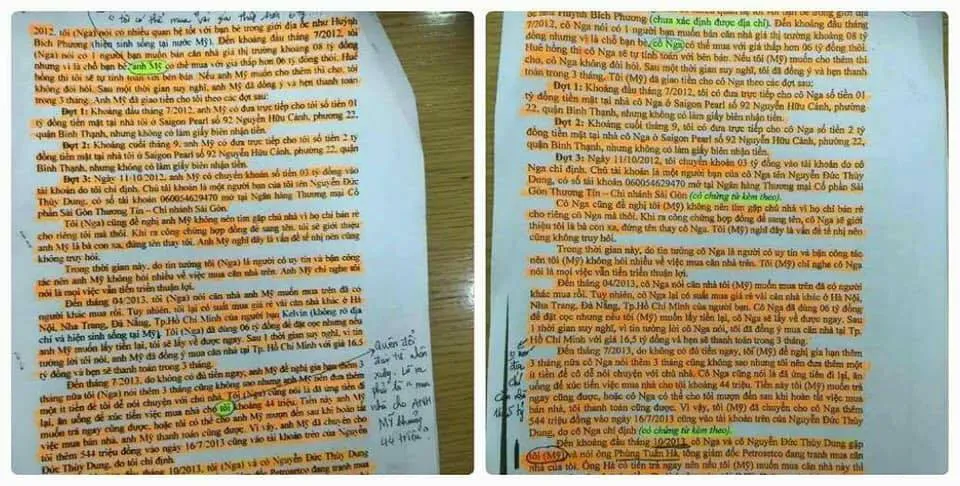 tôi có thể mua với giá thấp hơn 6 tỷ
2012, tôi (Nga) nói có nhiều quan hệ tốt với bạn bè trong giới địa ốc như Huỳnh
Bích Phương (hiện sinh sống tại nước Mỹ). Đến khoảng đầu tháng 7/2012, tôi
(Nga) nói có 1 người bạn muốn bán căn nhà giá thị trường khoảng 08 tỷ đồng
nhưng vì là chỗ bạn bè, anh Mỹ có thể mua với giá thấp hơn 06 tỷ đồng thôi. Huê
hồng thì tôi sẽ tự tính toán với bên bán. Nếu anh Mỹ muốn cho thêm thì cho, tôi
không đòi hỏi. Sau một thời gian suy nghĩ, anh Mỹ đã đồng ý và hẹn thanh toán
trong 3 tháng. Anh Mỹ đã giao tiền cho tôi theo các đợt sau:
Đợt 1: Khoảng đầu tháng 7/2012, anh Mỹ có đưa trực tiếp cho tôi số tiền 01
tỷ đồng tiền mặt tại nhà tôi ở Saigon Pearl số 92 Nguyễn Hữu Cảnh, phường 22,
quận Bình Thạnh, nhưng không có làm giấy biên nhận tiền.
Đợt 2: Khoảng cuối tháng 9, anh Mỹ có đưa trực tiếp cho tôi số tiền 2 tỷ
đồng tiền mặt tại nhà tôi ở Saigon Pearl số 92 Nguyễn Hữu Cảnh, phường 22, quận
Bình Thạnh, nhưng không có làm giấy biên nhận tiền.
Đợt 3: Ngày 11/10/2012, anh Mỹ có chuyển khoản số tiền 03 tỷ đồng vào
tài khoản do tôi chỉ định. Chủ tài khoản là một người bạn của tôi tên Nguyễn Đức
Thùy Dung, có số tài khoản 060054629470 mở tại Ngân hàng Thương mại Cổ
phần Sài Gòn Thương Tín – Chi nhánh Sài Gòn.
Tôi (Nga) cũng đề nghị anh Mỹ không nên tìm gặp chủ nhà vì họ chỉ bán rẻ
cho riêng tôi mà thôi. Khi ra công chứng hợp đồng để sang tên, tôi sẽ giới thiệu
anh Mỹ là bà con xa, đứng tên thay tôi. Anh Mỹ nghĩ đây là vấn đề tế nhị nên cũng
không truy hỏi.
Trong thời gian này, do tin tưởng tôi (Nga) là người có uy tín và bận công
tác nên anh Mỹ không hỏi nhiều về việc mua căn nhà trên. Anh Mỹ chỉ nghe tôi
nói là mọi việc vẫn tiến triển thuận lợi.
Đến tháng 04/2013, tôi (Nga) nói căn nhà anh Mỹ muốn mua trên đã có
người khác mua rồi. Tuy nhiên, tôi lại có suất mua giá rẻ vài căn nhà khác ở Hà
Nội, Nha Trang, Đà Nẵng, Tp.Hồ Chí Minh của người bạn Kelvin (không rõ địa
chỉ và hiện sinh sống tại Mỹ). Tôi (Nga) đã dùng 06 tỷ đồng để đặt cọc nhưng nếu
anh Mỹ muốn lấy tiền lại, tôi sẽ lấy về được ngay. Sau 1 thời gian suy nghĩ, vì tin
tưởng lời tôi nói, anh Mỹ đã đồng ý mua căn nhà tại Tp. Hồ Chí Minh với giá 16,5
tỷ đồng và hẹn sẽ thanh toán trong 3 tháng.
Đến tháng 7/2013, do không có đủ tiền ngay, anh Mỹ đề nghị gia hạn thêm 3
tháng nữa tôi (Nga) nói thêm 3 tháng cũng không sao nhưng anh Mỹ nên đưa thêm
một ít tiền để tôi dễ nói chuyện với chủ nhà. Tôi (Nga) cũng nói là đã ứng tiền đi
lại, ăn uống để xúc tiến việc mua nhà cho tôi khoảng 44 triệu. Tiền này anh Mỹ
muốn trả ngay cũng được, hoặc tôi có thể cho anh Mỹ mượn đến sau khi hoàn tất
việc mua bán nhà, anh Mỹ thanh toán cũng được. Vì vậy, anh Mỹ đã chuyển cho
tôi thêm 544 triệu đồng vào ngày 16/7/2013 cũng vào tài khoản trên của Nguyễn
Đức Thùy Dung, do tôi chỉ định.
tháng 10/2013, tôi (Nga) và cô Nguyễn Đức Thùy Dung
giám đốc Petrosetco đang tranh mua
Quên đổi
đại từ nhân
xưng. Lẽ ra
phải là "mua
nhà cho ANH
MỸ khoảng
44 triệu"
Huỳnh Bích Phương (chưa xác định được địa chỉ). Đến khoảng đầu tháng
7/2012, cô Nga nói có 1 người bạn muốn bán căn nhà giá thị trường khoảng 08 tỷ
đồng nhưng vì là chỗ bạn bè, cô Nga có thể mua với giá thấp hơn 06 tỷ đồng thôi.
Huê hồng thì cô Nga sẽ tự tính toán với bên bán. Nếu tôi (Mỹ) muốn cho thêm thì
cho, cô Nga không đòi hỏi. Sau một thời gian suy nghĩ, tôi đã đồng ý và hẹn thanh
toán trong 3 tháng. Tôi (Mỹ) đã giao tiền cho cô Nga theo các đợt sau:
Đợt 1: Khoảng đầu tháng 7/2012, tôi có đưa trực tiếp cho cô Nga số tiền 01
tỷ đồng tiền mặt tại nhà cô Nga ở Saigon Pearl số 92 Nguyễn Hữu Cảnh, phường
22, quận Bình Thạnh, nhưng không có làm giấy biên nhận tiền.
Đợt 2: Khoảng cuối tháng 9, tôi có đưa trực tiếp cho cô Nga số tiền 2 tỷ
đồng tiền mặt tại nhà cô Nga ở Saigon Pearl số 92 Nguyễn Hữu Cảnh, phường 22,
quận Bình Thạnh, nhưng không có làm giấy biên nhận tiền.
Đợt 3: Ngày 11/10/2012, tôi chuyển khoản 03 tỷ đồng vào tài khoản do cô
Nga chỉ định. Chủ tài khoản là một người bạn của cô Nga tên Nguyễn Đức Thùy
Dung, có số tài khoản 060054629470 mở tại Ngân hàng Thương mại Cổ phần Sài
Gòn Thương Tín – Chi nhánh Sài Gòn (có chứng từ kèm theo).
Cô Nga cũng đề nghị tôi (Mỹ) không nên tìm gặp chủ nhà vì họ chỉ bán rẻ
cho riêng cô Nga mà thôi. Khi ra công chứng hợp đồng để sang tên, cô Nga sẽ giới
thiệu tôi là bà con xa, đứng tên thay cô Nga. Tôi (Mỹ) nghĩ đây là vấn đề tế nhị nên
cũng không truy hỏi.
Trong thời gian này, do tin tưởng cô Nga là người có uy tín và bận công tác
nên tôi (Mỹ) không hỏi nhiều về việc mua căn nhà trên. Tôi (Mỹ) chỉ nghe cô Nga
nói là mọi việc vẫn tiến triển thuận lợi.
Đến tháng 04/2013, cô Nga nói căn nhà tôi (Mỹ) muốn mua trên đã có người
khác mua rồi. Tuy nhiên, cô Nga lại có suất mua giá rẻ vài căn nhà khác ở Hà Nội,
Nha Trang, Đà Nẵng, Tp.Hồ Chí Minh của người bạn. Cô Nga đã dùng 06 tỷ đồng
để đặt cọc nhưng nếu tôi (Mỹ) muốn lấy tiền lại, cô Nga sẽ lấy về được ngay. Sau
1 thời gian suy nghĩ, vì tin tưởng lời cô Nga nói, tôi đã đồng ý mua căn nhà tại Tp.
Hồ Chí Minh với giá 16,5 tỷ đồng và hẹn sẽ thanh toán trong 3 tháng.
Đến tháng 7/2013, do không có đủ tiền ngay, tôi (Mỹ) đề nghị gia hạn thêm
3 tháng nữa cô Nga nói thêm 3 tháng cũng không sao nhưng tôi nên đưa thêm một
ít tiền để cô dễ nói chuyện với chủ nhà. Cô Nga cũng nói là đã ứng tiền đi lại, ăn
uống để xúc tiến việc mua nhà cho tôi khoảng 44 triệu. Tiền này tôi (Mỹ) muốn trả
ngay cũng được, hoặc cô Nga có thể cho tôi mượn đến sau khi hoàn tất việc mua
bán nhà, tôi thanh toán cũng được. Vì vậy, tôi (Mỹ) đã chuyển cho cô Nga thêm
544 triệu đồng vào ngày 16/7/2013 cũng vào tài khoản trên của Nguyễn Đức Thùy
Dung, do cô Nga chỉ định (có chứng từ kèm theo).
Đến khoảng đầu tháng 10/2013, cô Nga và cô Nguyễn Đức Thùy Dung gặp
tôi (Mỹ) và nói ông Phùng Tuấn Hà, tổng giám đốc Petrosetco đang tranh mua căn
nhà của tôi. Ông Hà có tiền trả ngay nên nếu tôi (Mỹ) muốn mua căn nhà này thì